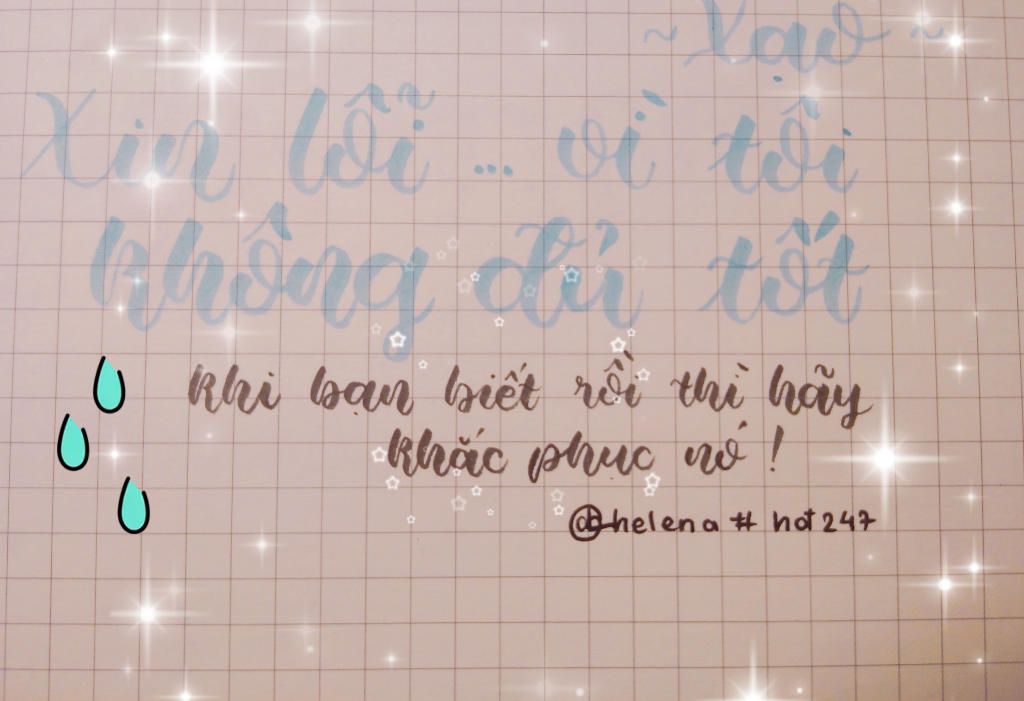 ~ Xạo ~
Xin lỗi ... vì tôi
không đủ tốt
khi bạn biết rồi thì hãy
khắc phục nó !
@helena # hot247